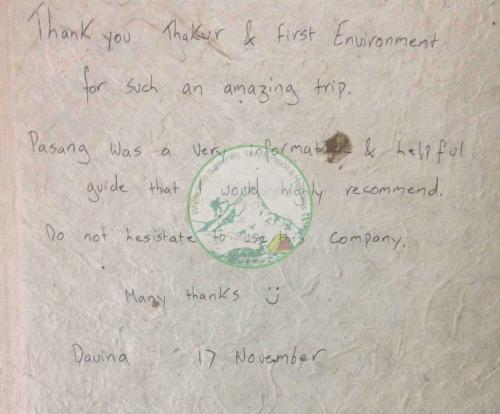 Thank you Thakur & First Environment
for such an amazing trip.
Pasang was a very informative & helpful
guide that I would highly recommend.
Do not hesistate to use this company.
Many thanks :)
Davina 17 November